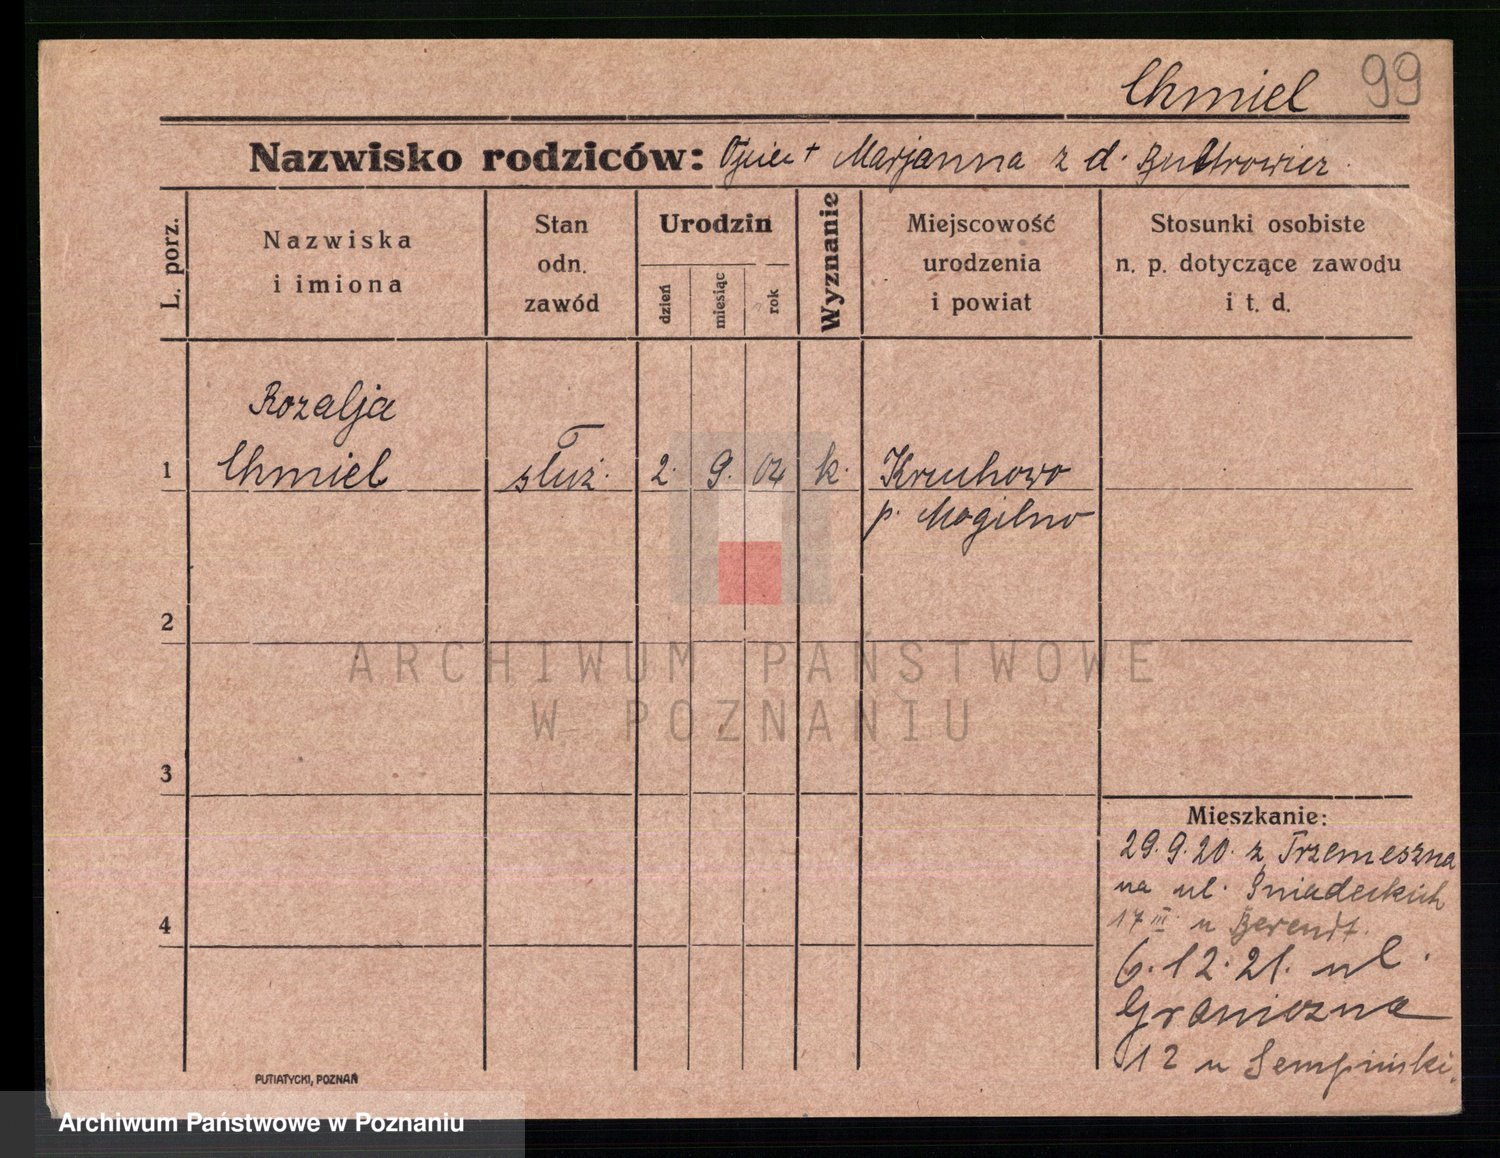 Chmiel 99
Nazwisko rodziców: Marjanna z d.
L. porz.
Nazwiska
i imiona
Stan
odn.
zawód
Urodzin
dzień
miesiąc
rok
Wyznanie
Miejscowość
urodzenia
i powiat
Stosunki osobiste
n. p. dotyczące zawodu
i t. d.
Rozalja
1 Chmiel służ. 2. 9. 04 k. Kruchowo
p. Mogilno
2
ARCHIWUM PAŃSTWOWE
W POZNANIU
3
Mieszkanie:
29.9.20. z Trzemeszna
na ul. Śniadeckich
17 III u Berendt.
4
6.12.21. ul.
Graniczna
12 u Sempiński.
PUTIATYCKI, POZNAŃ
Archiwum Państwowe w Poznaniu